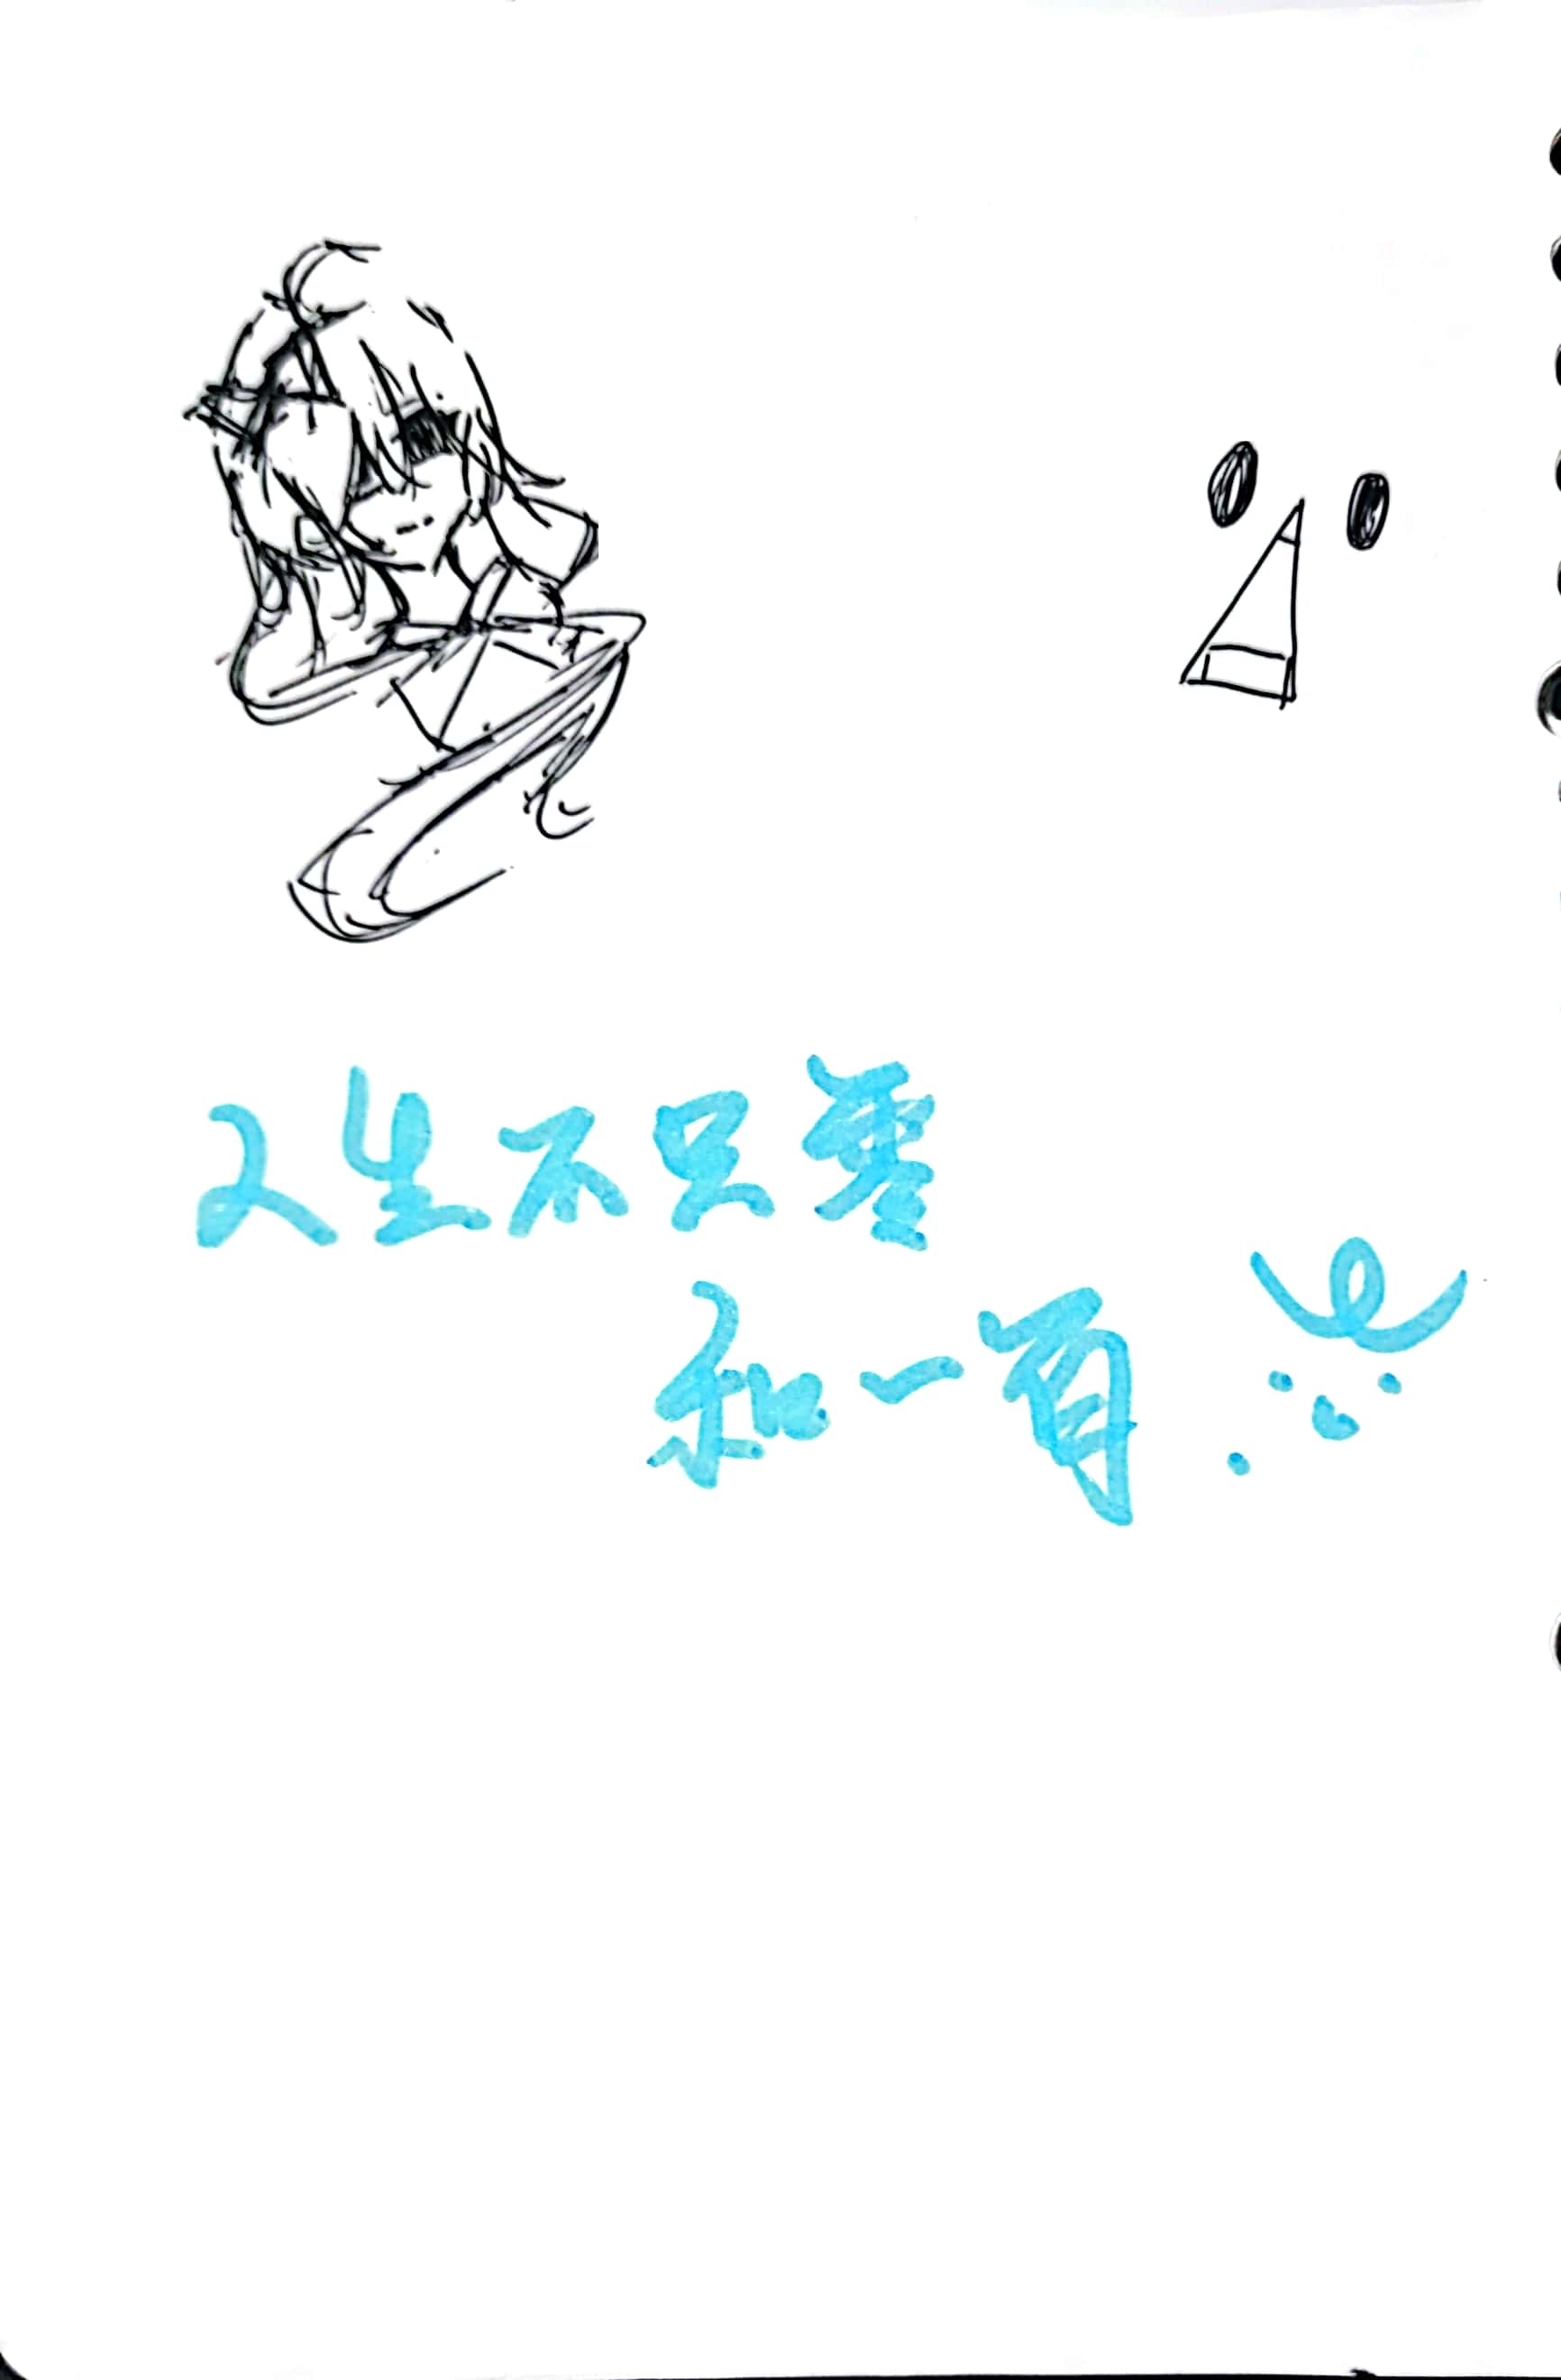 人生不只零
和一百